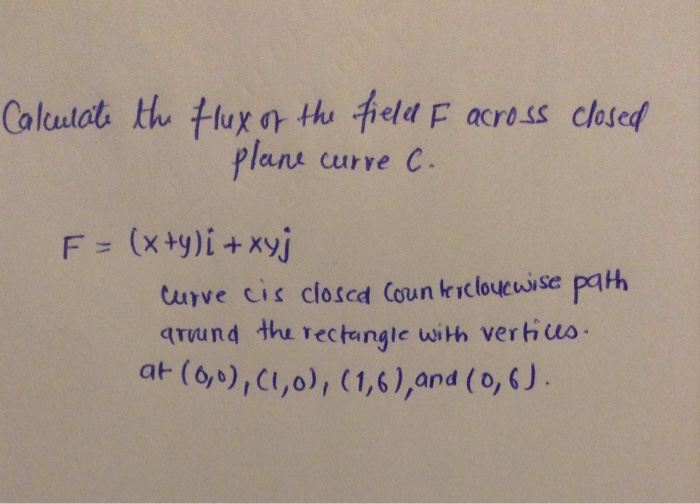 Calculate the flux of the field F across closed
plane curve C.
F = (x+y)i + xyj
curve c is closed counterclockwise path
around the rectangle with vertices.
at (0,0), (1,0), (1,6), and (0,6).